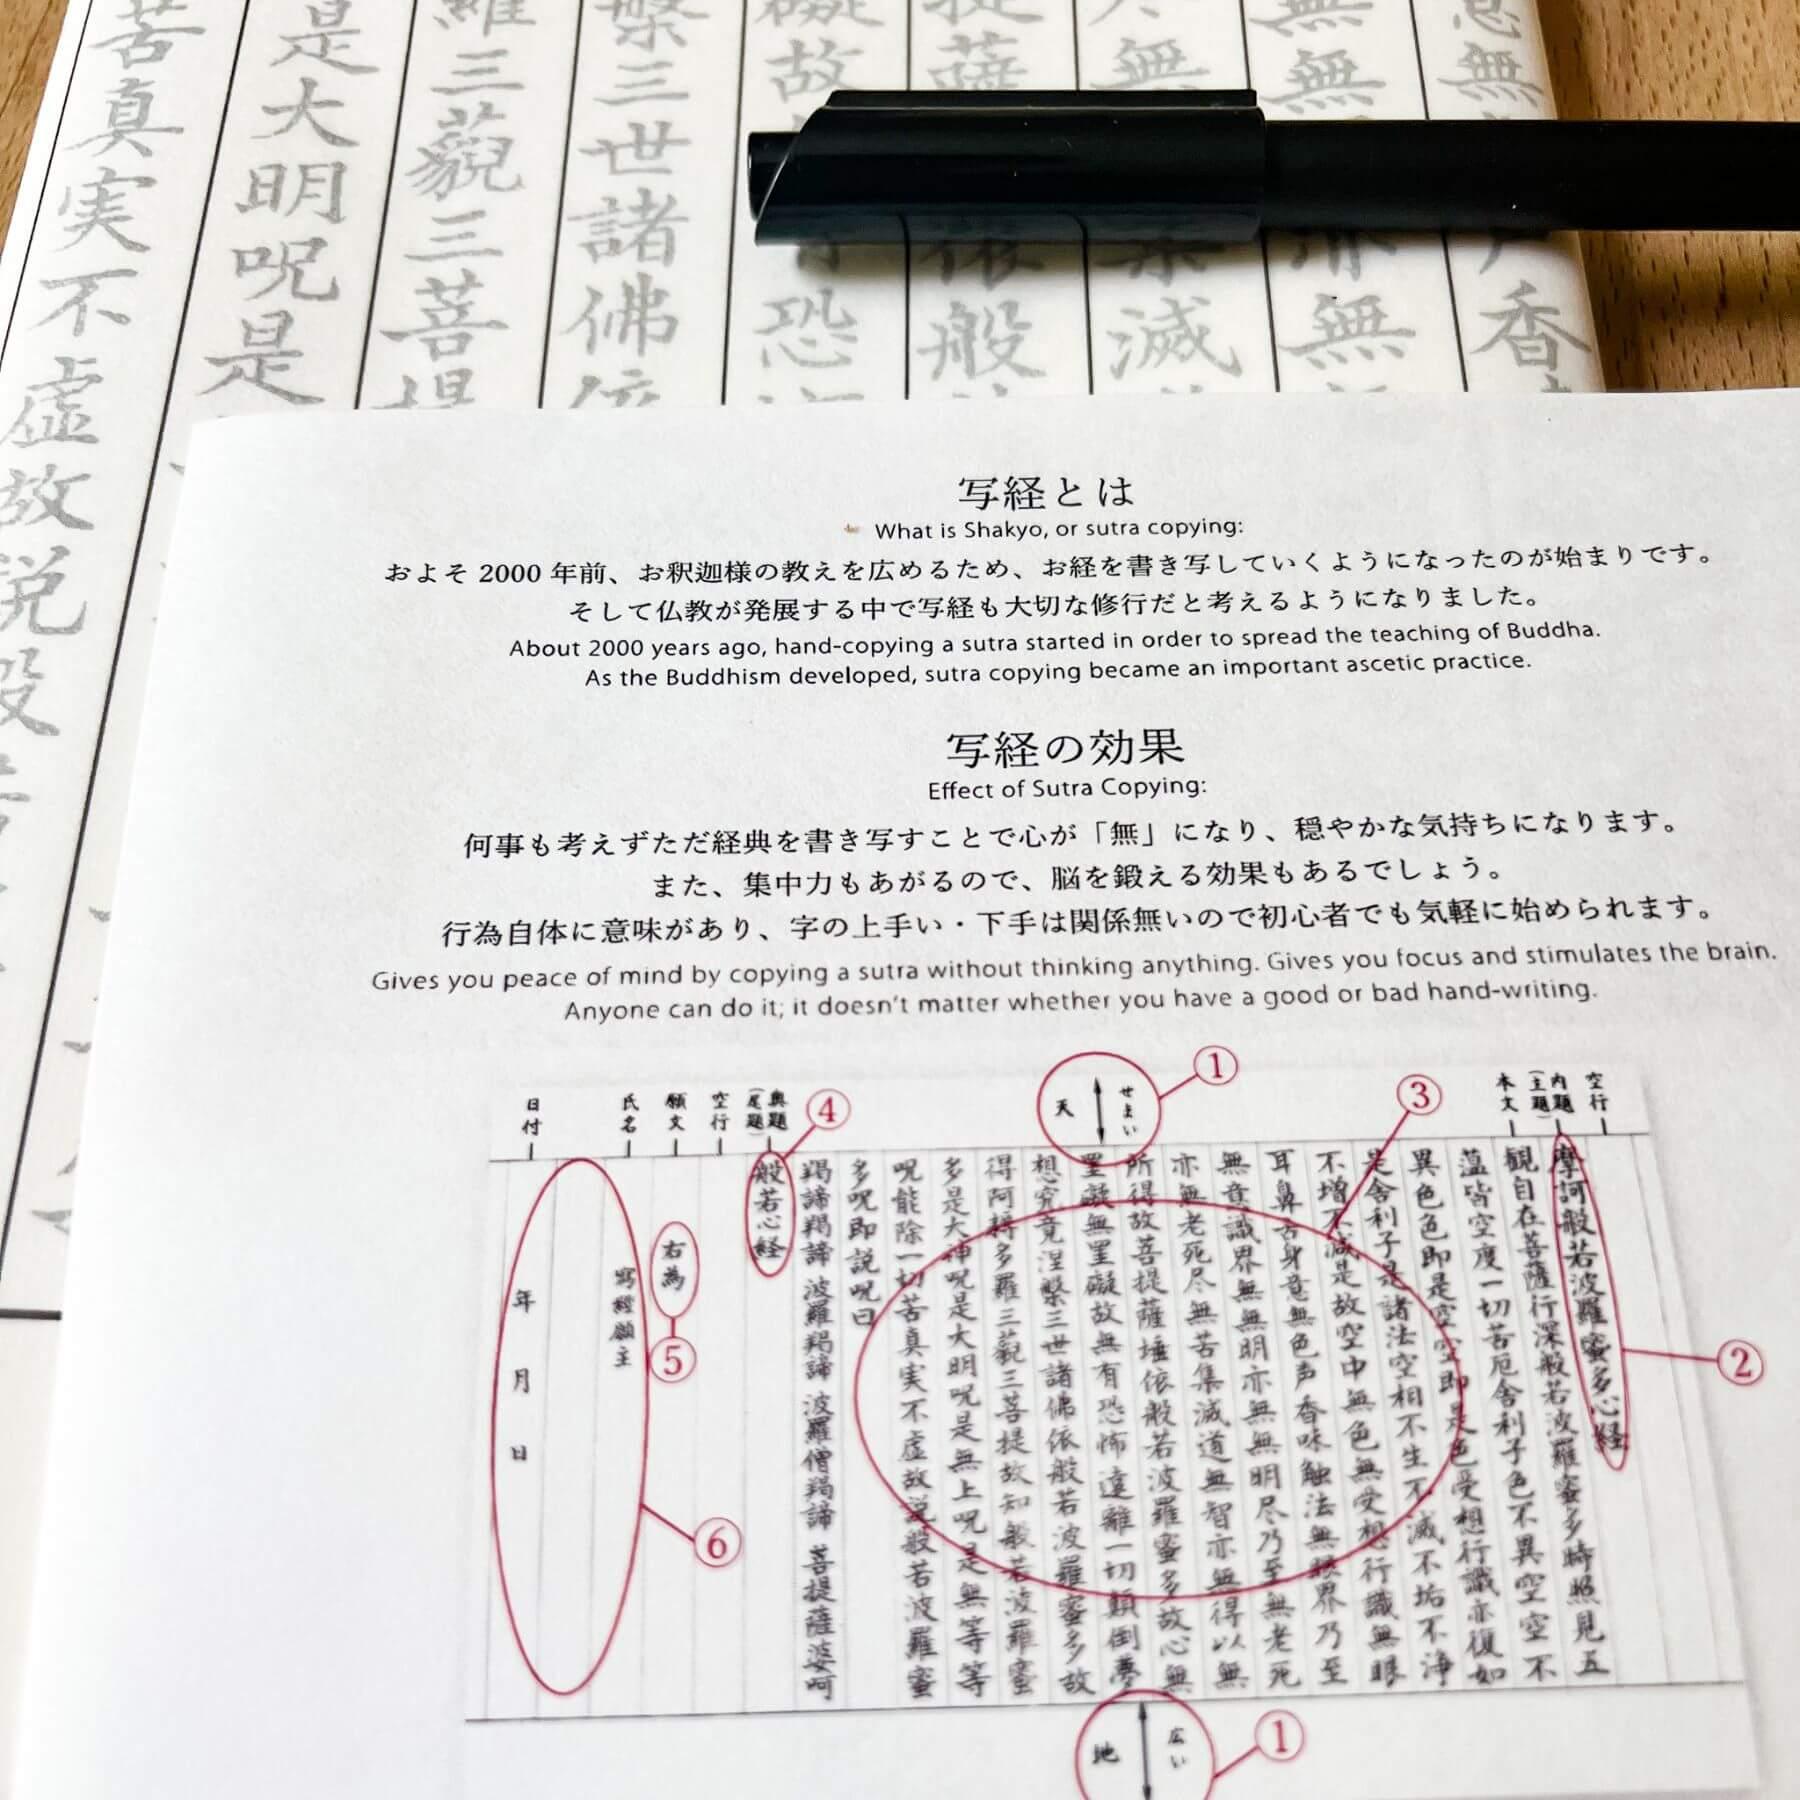 無
香
無無
亦無
無
滅
提薩
依般
礙故
恐
槃三世諸佛依
羅三藐三菩提
是大明呪是
苦真実不虚故説般
写経とは
What is Shakyo, or sutra copying:
およそ 2000 年前、お釈迦様の教えを広めるため、お経を書き写していくようになったのが始まりです。
そして仏教が発展する中で写経も大切な修行だと考えるようになりました。
About 2000 years ago, hand-copying a sutra started in order to spread the teaching of Buddha.
As the Buddhism developed, sutra copying became an important ascetic practice.
写経の効果
Effect of Sutra Copying:
何事も考えずただ経典を書き写すことで心が「無」になり、穏やかな気持ちになります。
また、集中力もあがるので、脳を鍛える効果もあるでしょう。
行為自体に意味があり、字の上手い・下手は関係無いので初心者でも気軽に始められます。
Gives you peace of mind by copying a sutra without thinking anything. Gives you focus and stimulates the brain.
Anyone can do it; it doesn't matter whether you have a good or bad hand-writing.
①
せまい
天
③
④
空行
内題
(主題)
本文
奥題
(尾題)
空行
願文
氏名
日付
摩訶般若波羅蜜多心経
②
観自在菩薩行深般若波羅蜜多時照見五
蘊皆空度一切苦厄舎利子色不異空空不
異色色即是空空即是色受想行識亦復如
是舎利子是諸法空相不生不滅不垢不浄
不増不減是故空中無色無受想行識無眼
耳鼻舌身意無色声香味触法無眼界乃至
無意識界無無明亦無無明尽乃至無老死
亦無老死尽無苦集滅道無智亦無得以無
所得故菩提薩埵依般若波羅蜜多故心無
罣礙無罣礙故無有恐怖遠離一切顛倒夢
想究竟涅槃三世諸佛依般若波羅蜜多故
得阿耨多羅三藐三菩提故知般若波羅蜜
多是大神呪是大明呪是無上呪是無等等
呪能除一切苦真実不虚故説般若波羅蜜
多呪即説呪曰
羯諦羯諦 波羅羯諦 波羅僧羯諦 菩提薩婆訶
般若心経
右為
⑤
寫經願主
年 月 日
⑥
広い
地
①